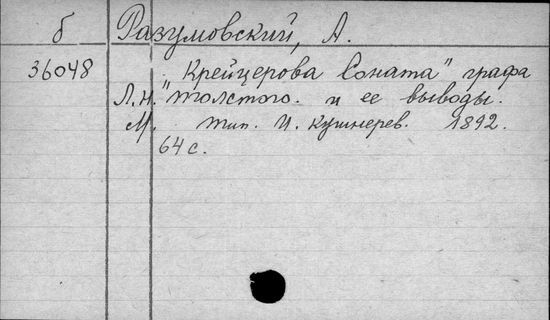 б Разумовский, А.
36048 "Крейцерова Соната" графа
Л.Н. Толстого. и ее выводы.
М. тип. И. Кушнерев. 1892.
64 с.